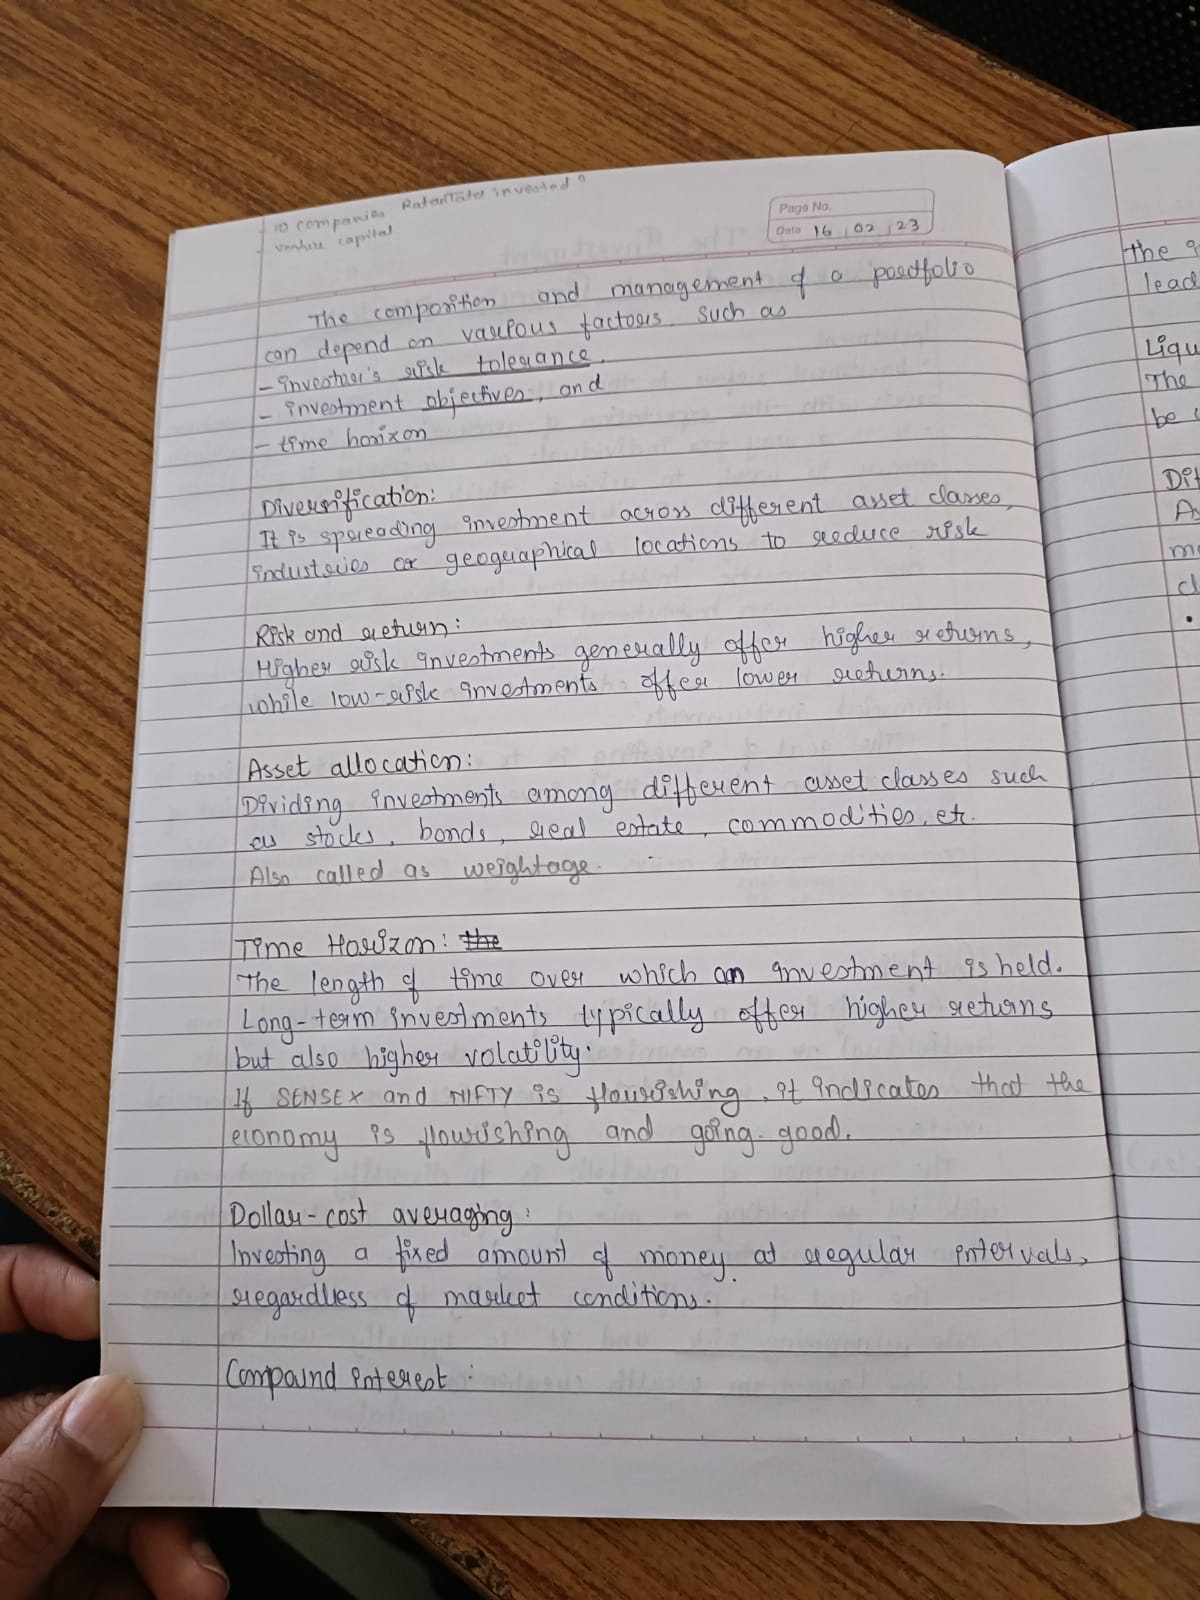 10 companies RatanTata invested?
venture capital
Page No.
Date 16 02 23
The composition and management of a portfolio
can depend on various factors, such as
- investor's risk tolerance,
- investment objectives, and
- time horizon
Diversification:
It is spreading investment across different asset classes,
industries or geographical locations to reduce risk
Risk and return:
Higher risk investments generally offer higher returns,
while low-risk investments offer lower returns.
Asset allocation:
Dividing investments among different asset classes such
as stocks, bonds, real estate, commodities, etc.
Also called as weightage.
Time Horizon: the
The length of time over which an investment is held.
Long-term investments typically offer higher returns
but also higher volatility.
If SENSEX and NIFTY is flourishing, it indicates that the
economy is flourishing and going good.
Dollar-cost averaging:
Investing a fixed amount of money at regular intervals,
regardless of market conditions.
Compound interest:
the
lead
The
be